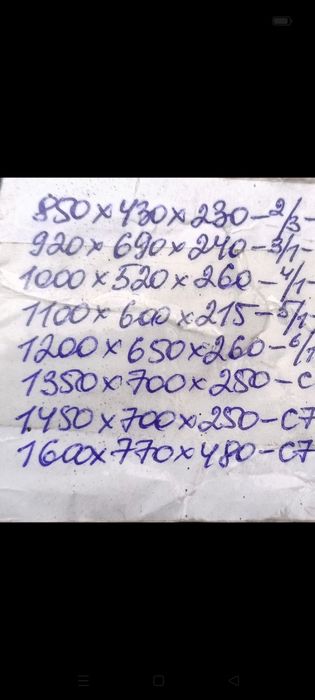 850×430×230-2/3-
920×690×240-3/1-
1000×520×260-4/1-
1100×600×215-5/1-
1200×650×260-6/1
1350×700×250-С
1450×700×250-С7
1600×770×480-С7